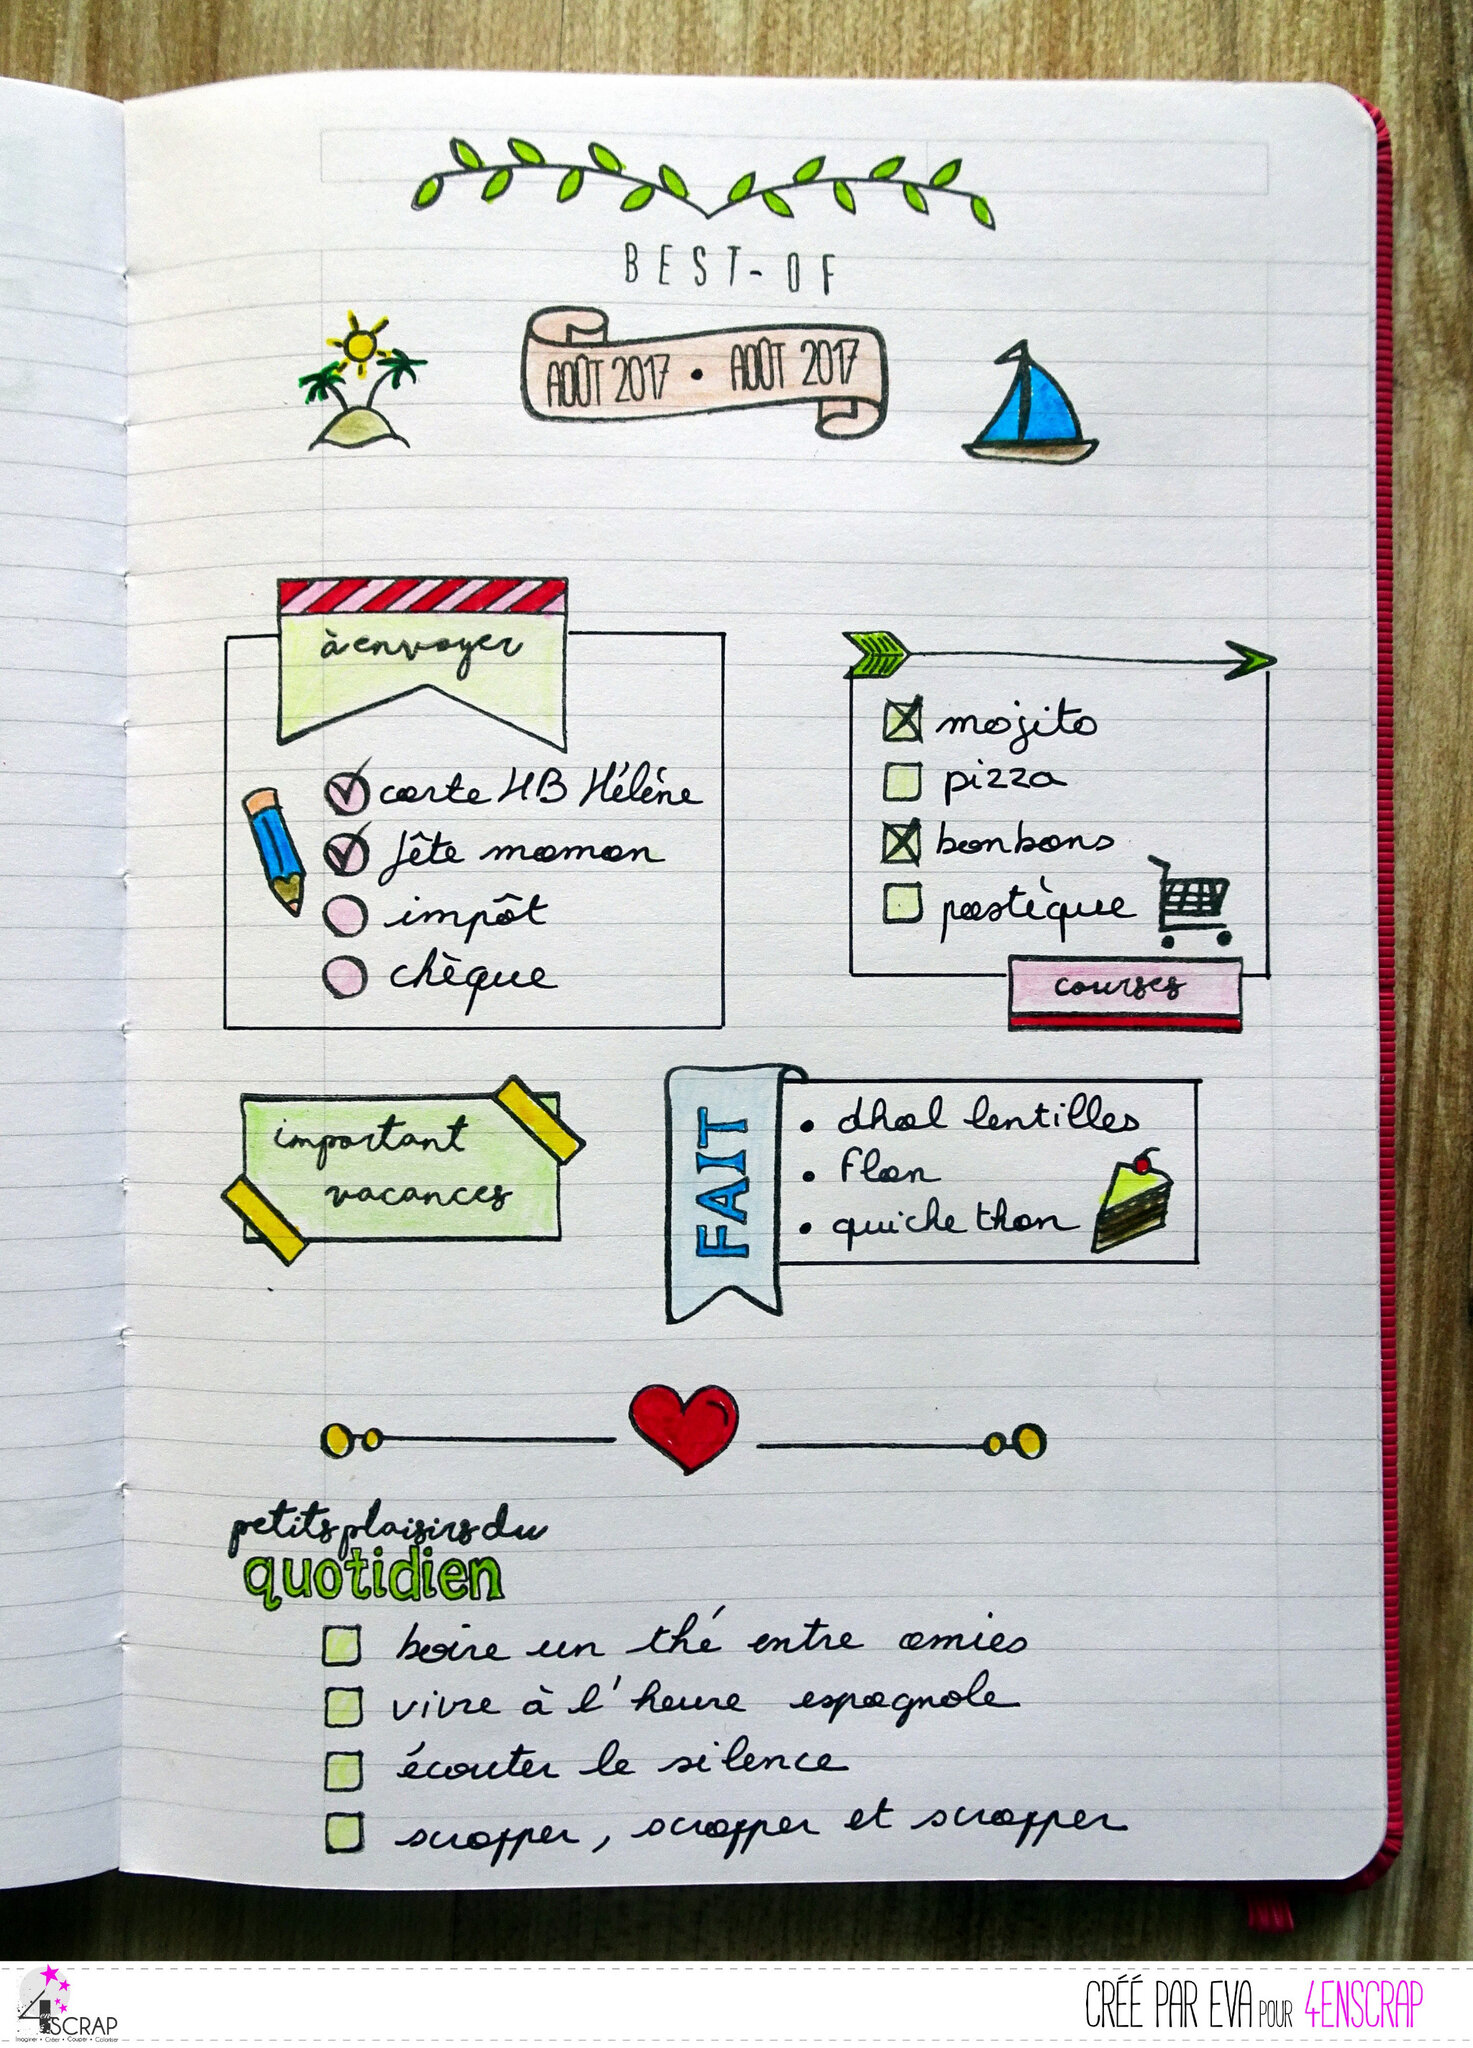 BEST-OF
AOÛT 2017 • AOÛT 2017
à envoyer
carte HB Hélène
fête maman
impôt
chèque
mojito
pizza
bonbons
pastèque
courses
important
vacances
FAIT
• dhal lentilles
• flan
• quiche thon
petits plaisirs du
quotidien
boire un thé entre amies
vivre à l'heure espagnole
écouter le silence
scrapper, scrapper et scrapper
4enSCRAP
Imaginer • Créer • Couper • Coloriser
CRÉÉ PAR EVA POUR 4ENSCRAP